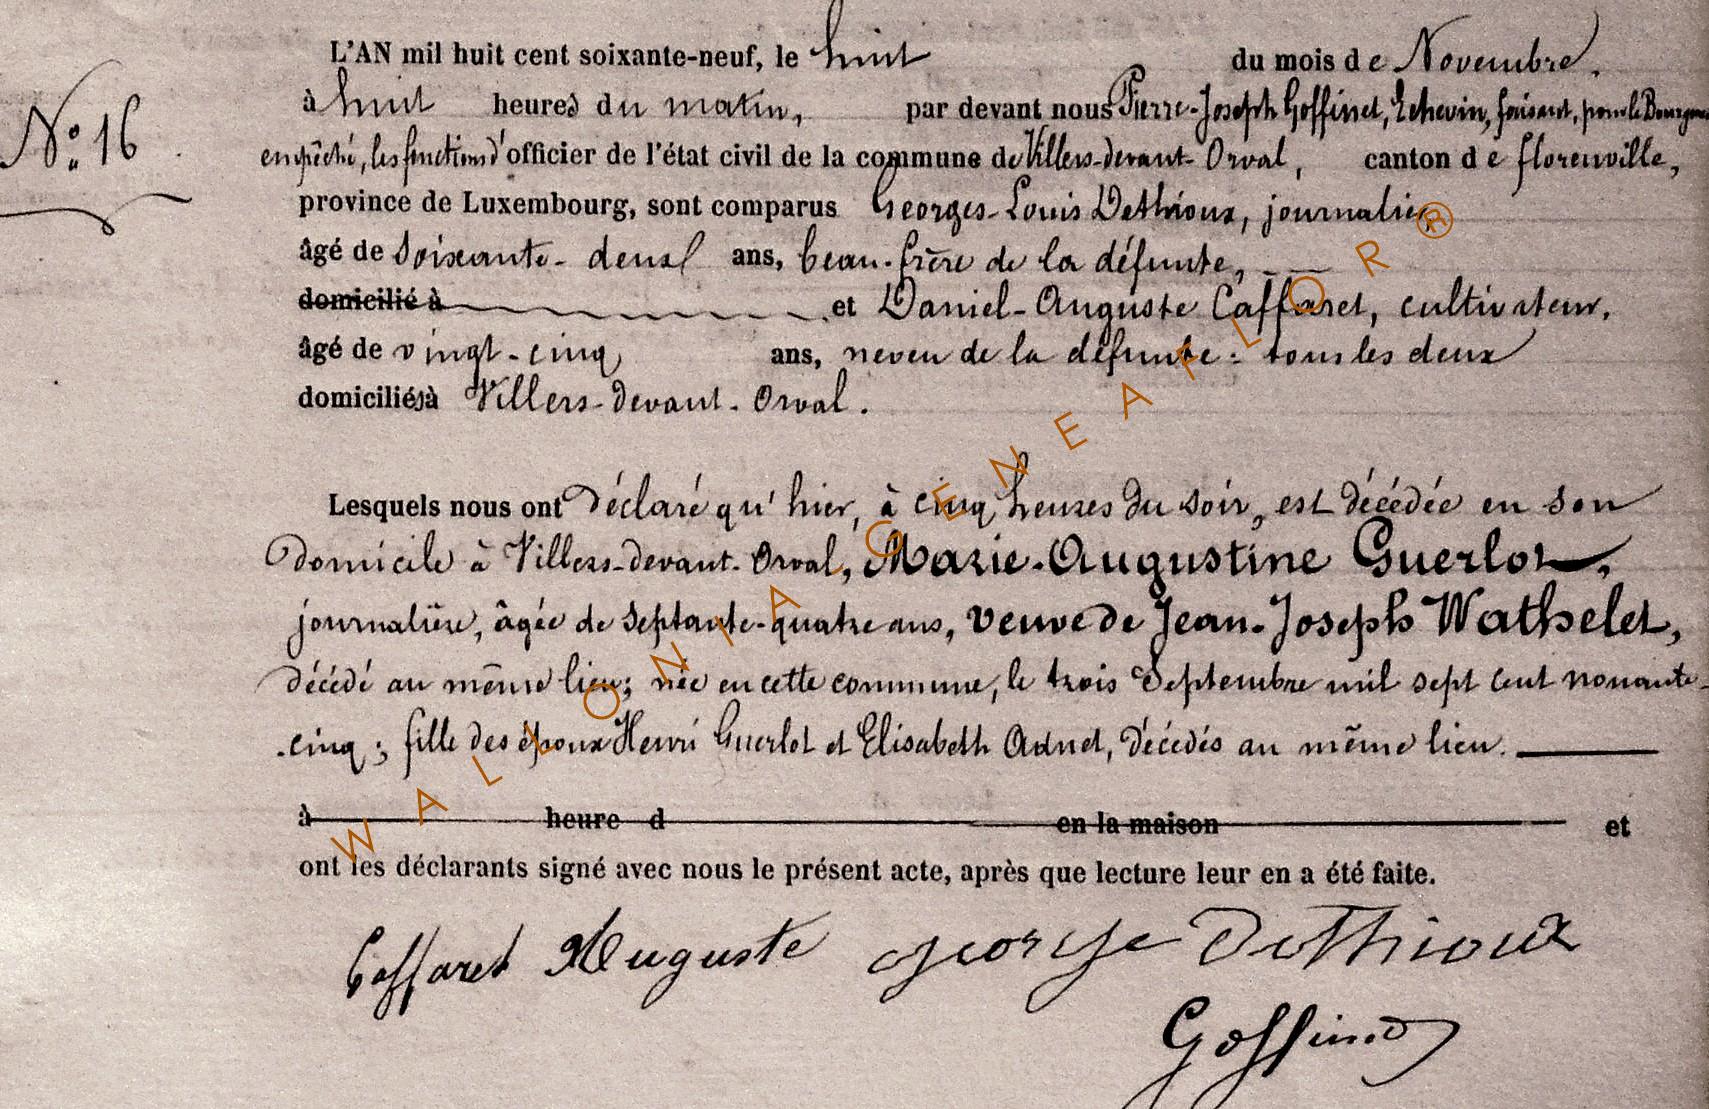 L'AN mil huit cent soixante-neuf, le huit du mois de Novembre,
à huit heures du matin, par devant nous Pierre-Joseph Goffinet, Echevin, faisant, pour le Bourgm
N° 16
empêché, les fonctions d'officier de l'état civil de la commune de Villers-devant-Orval, canton de florenville,
province de Luxembourg, sont comparus Georges-Louis Dethioux, journalier,
âgé de soixante-deux ans, beau-frère de la défunte,
domicilié à et Daniel-Auguste Caffaret, cultivateur,
âgé de vingt-cinq ans, neveu de la défunte: tous les deux
domiciliés à Villers-devant-Orval.
Lesquels nous ont déclaré qu'hier, à cinq heures du soir, est décédée en son
domicile à Villers-devant-Orval, Marie-Augustine Guerlot,
journalière, âgée de septante-quatre ans, veuve de Jean-Joseph Wathelet,
décédé au même lieu; née en cette commune, le trois Septembre mil sept cent nonante-
-cinq; fille des époux Henri Guerlot et Elisabeth Adnet, décédés au même lieu.
à heure d en la maison et
ont les déclarants signé avec nous le présent acte, après que lecture leur en a été faite.
Caffaret Auguste George Dethioux
Goffinet
WALLONIA GENEAFLOR ®